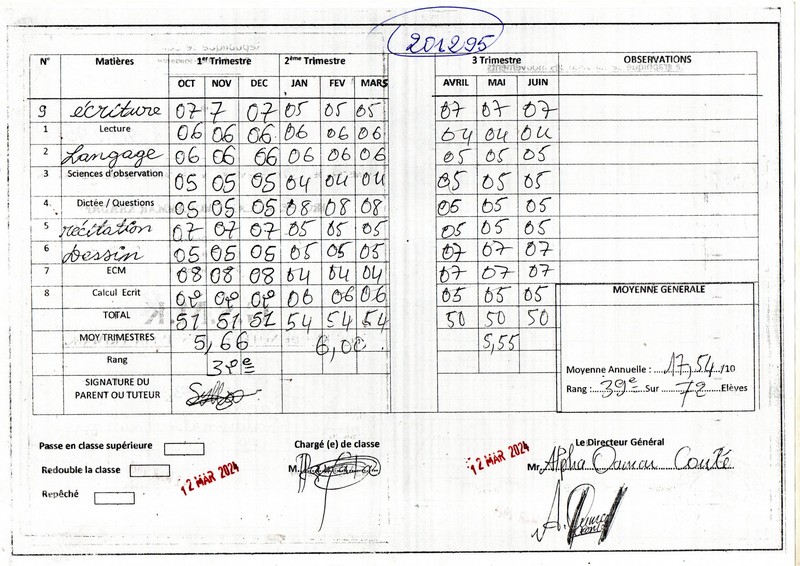 201295
N° Matières 1er Trimestre 2ème Trimestre 3 Trimestre OBSERVATIONS
OCT NOV DEC JAN FEV MARS AVRIL MAI JUIN
9 écriture 07 7 07 05 05 05 07 07 07
1 Lecture 06 06 06 06 06 06 04 04 04
2 Langage 06 06 06 06 06 06 05 05 05
3 Sciences d'observation 05 05 05 04 04 04 05 05 05
4 Dictée / Questions 05 05 05 08 08 08 05 05 05
5 récitation 07 07 07 05 05 05 05 05 05
6 Dessin 05 05 05 05 05 05 07 07 07
7 ECM 08 08 08 04 04 04 07 07 07
8 Calcul Ecrit 06 06 06 05 05 05
TOTAL 51 51 51 54 54 54 50 50 50
MOY TRIMESTRES 5,66 6,00 5,55
Rang
SIGNATURE DU
PARENT OU TUTEUR
MOYENNE GENERALE
Moyenne Annuelle : 17,54 /10
Rang : 39e Sur 72 Elèves
Passe en classe supérieure
Redouble la classe
Repêché
12 MAR 2024
Chargé (e) de classe
M.
12 MAR 2024
Le Directeur Général
Mr Alpha Oumar Conté